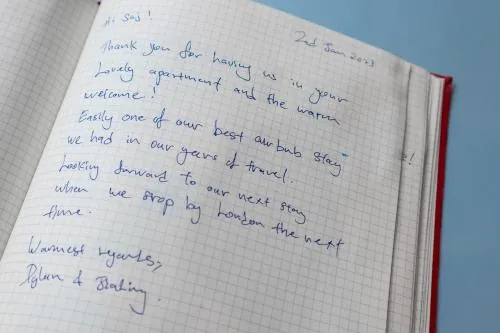 Hi Saj!
2nd Jan 2023
Thank you for having us in your
Lovely apartment and the warm
welcome!
Easily one of our best airbnb stay
we had in our years of travel.
Looking forward to our next stay
when we stop by London the next
time.
Warmest regards,
&
!